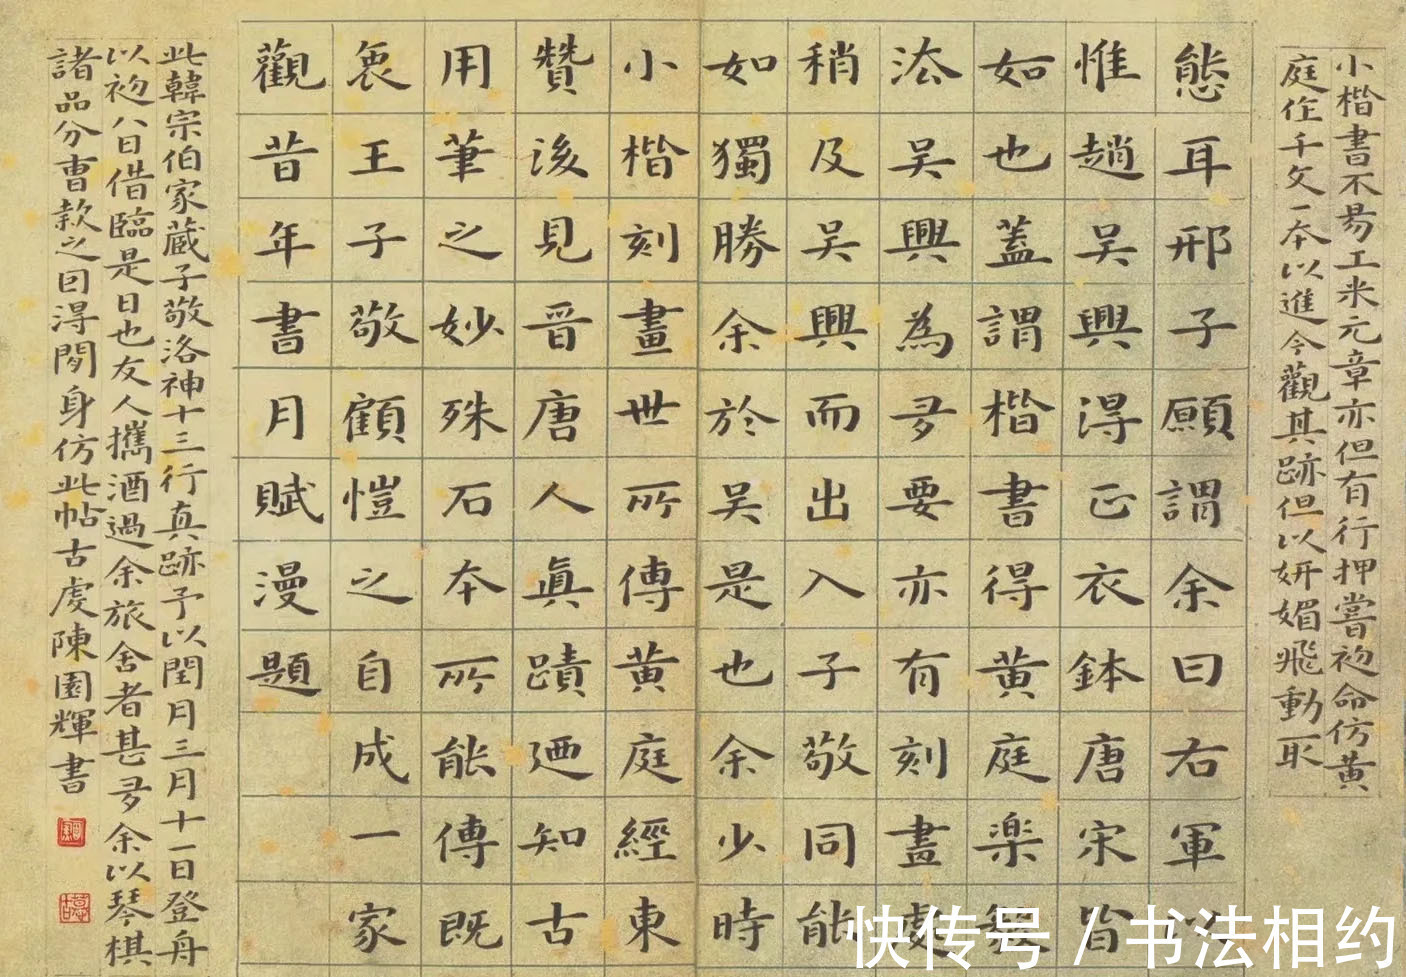 小楷書不易工米元章亦但有行押嘗初命仿黃
庭作千文一本以進今觀其跡但以妍媚飛動取
態耳邢子願謂余曰右軍以
惟趙吳興得正衣鉢唐宋皆
如也蓋謂楷書得黃庭樂毅
法吳興為多要亦有刻畫處
稍及吳興而出入子敬同能
如獨勝余於吳是也余少時
小楷刻畫世所傳黃庭經東
贊後見晉唐人真蹟迺知古
用筆之妙殊石本所能傳既
裒王子敬顧愷之自成一家
觀昔年書月賦漫題
此韓宗伯家藏子敬洛神十三行真跡予以閏月三月十一日登舟
以初八日借臨是日也友人攜酒過余旅舍者甚多余以琴棋
諸品分曹款之因得閒身仿此帖古虔陳國輝書
快传号 / 书法相约